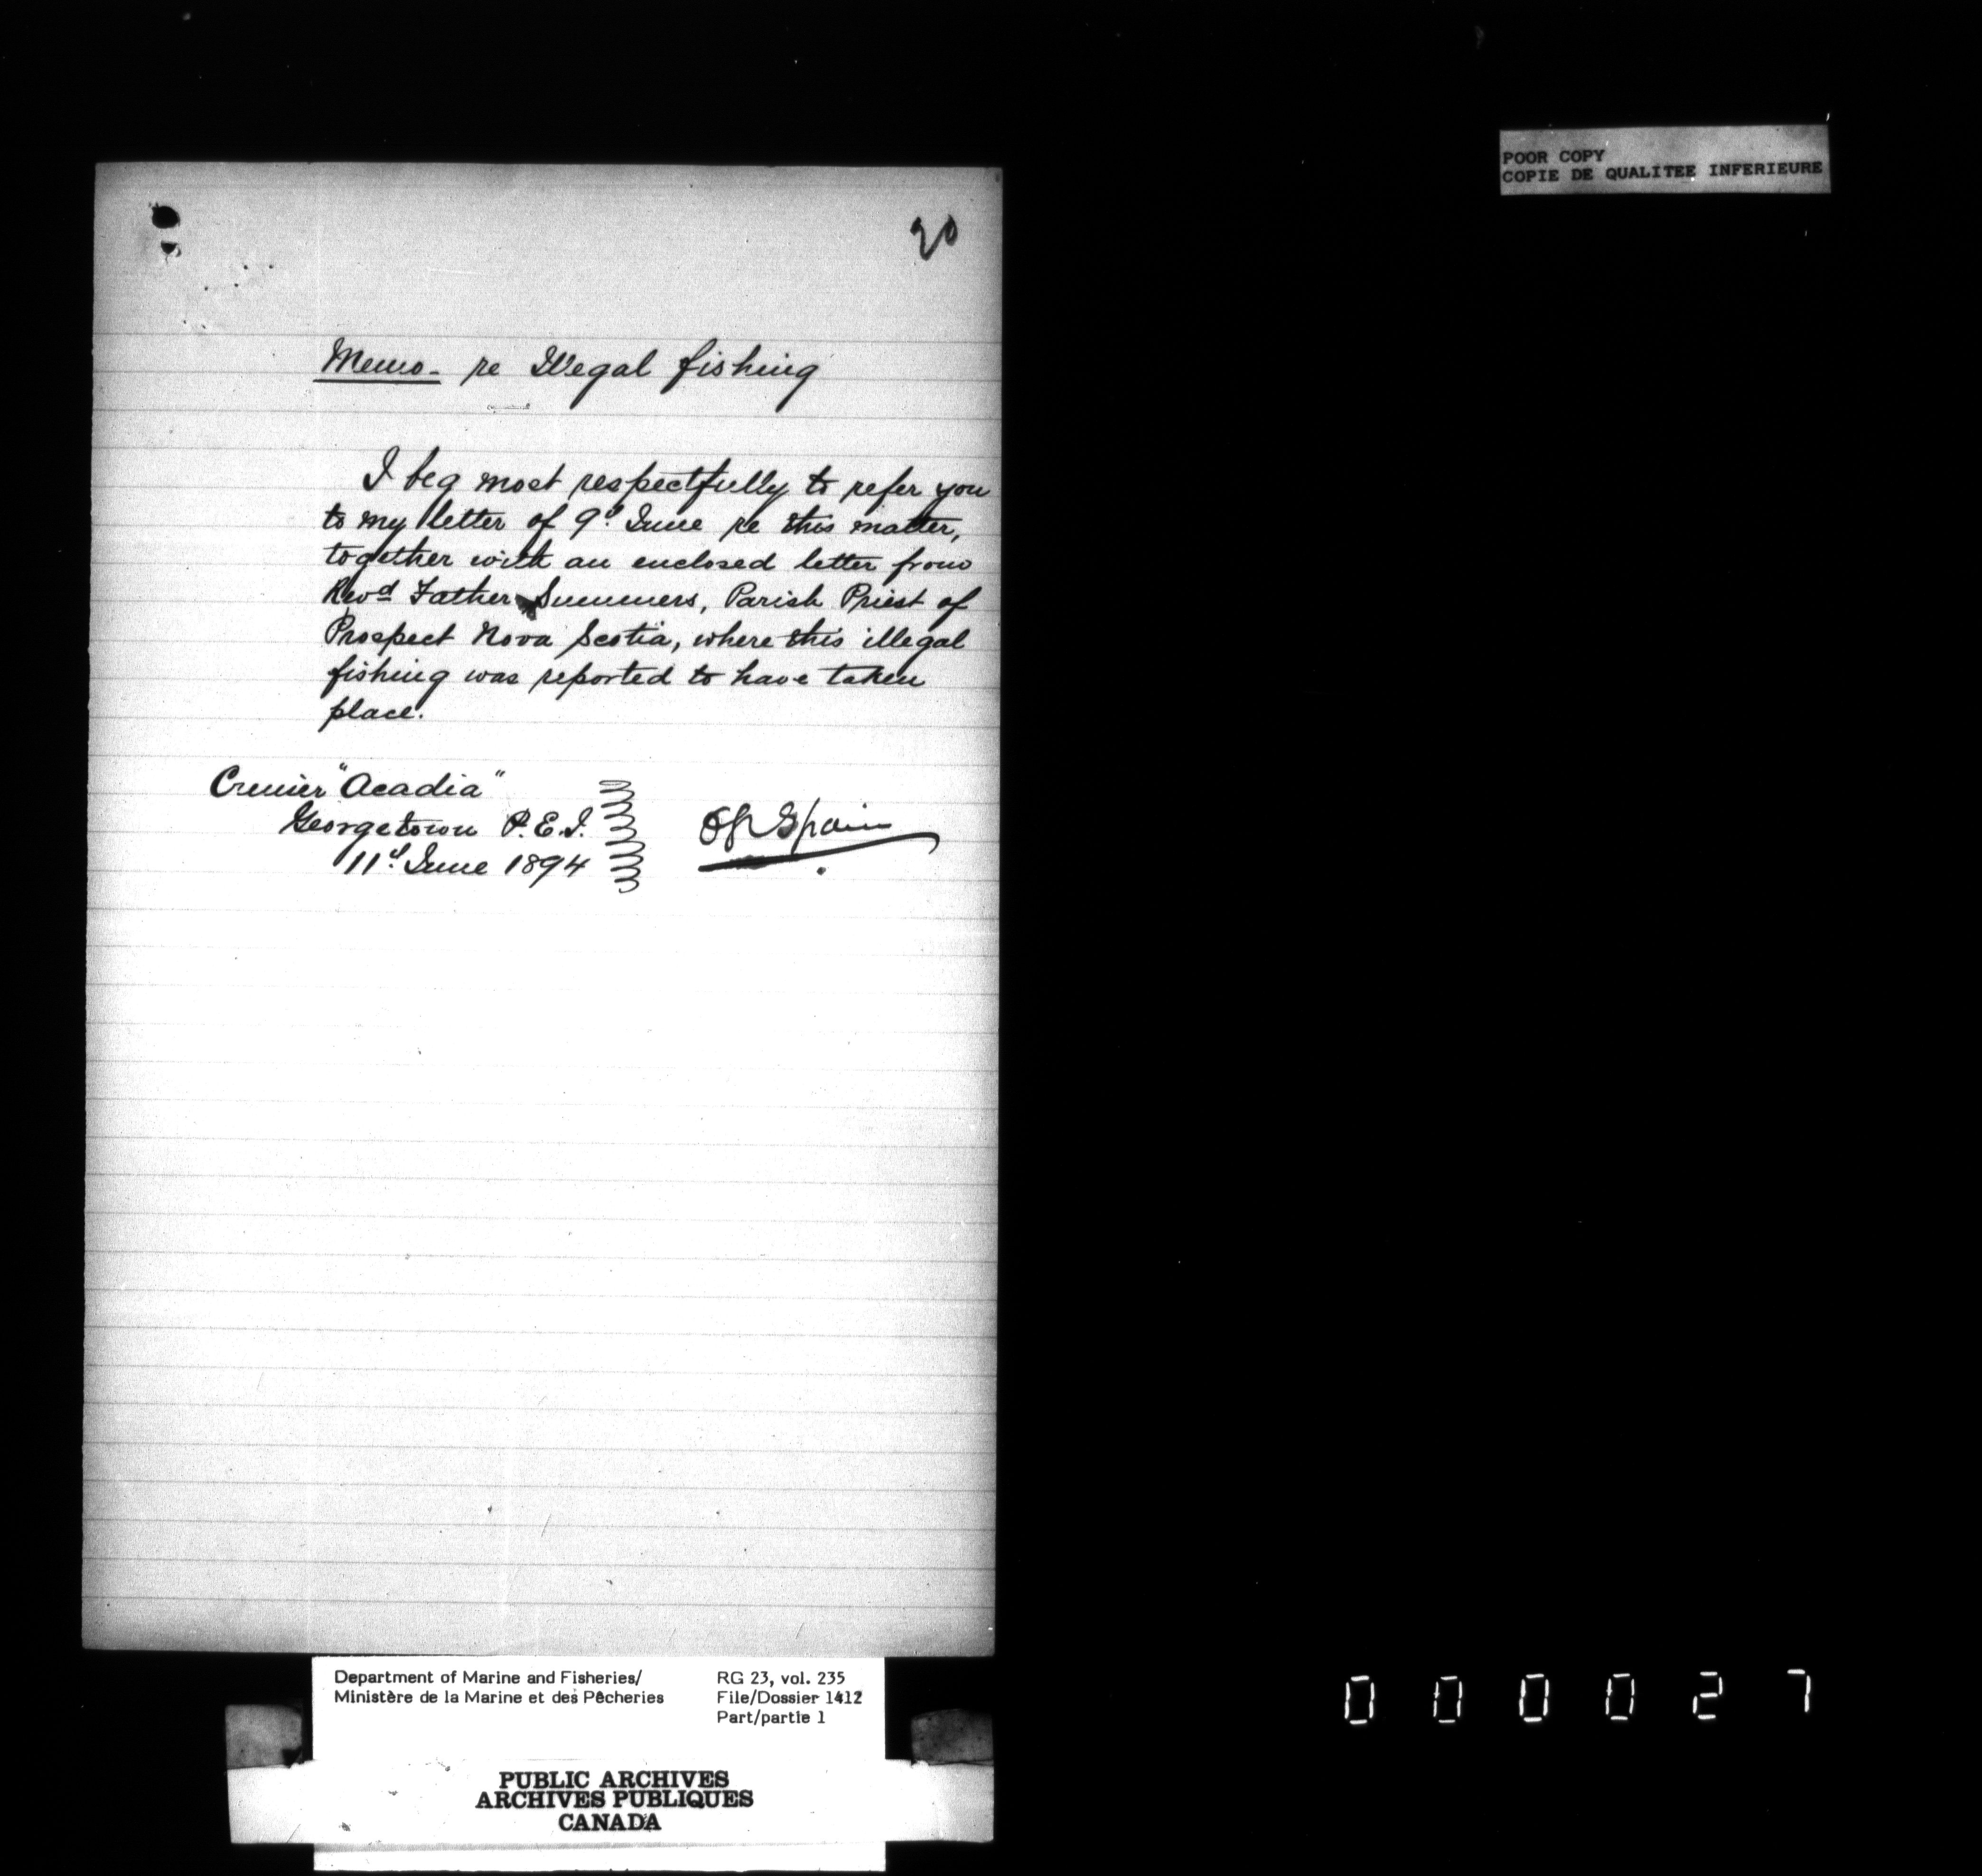 POOR COPY
COPIE DE QUALITEE INFERIEURE
20
Memo- re Illegal fishing
I beg most respectfully to refer you
to my letter of 9th June re this matter,
together with an enclosed letter from
Revd Father Summers, Parish Priest of
Prospect Nova Scotia, where this illegal
fishing was reported to have taken
place.
Cruiser "Acadia"
Georgetown P.E.I.
11th June 1894
Spain
Department of Marine and Fisheries/
Ministère de la Marine et des Pêcheries
RG 23, vol. 235
File/Dossier 1412
Part/partie 1
PUBLIC ARCHIVES
ARCHIVES PUBLIQUES
CANADA
000027